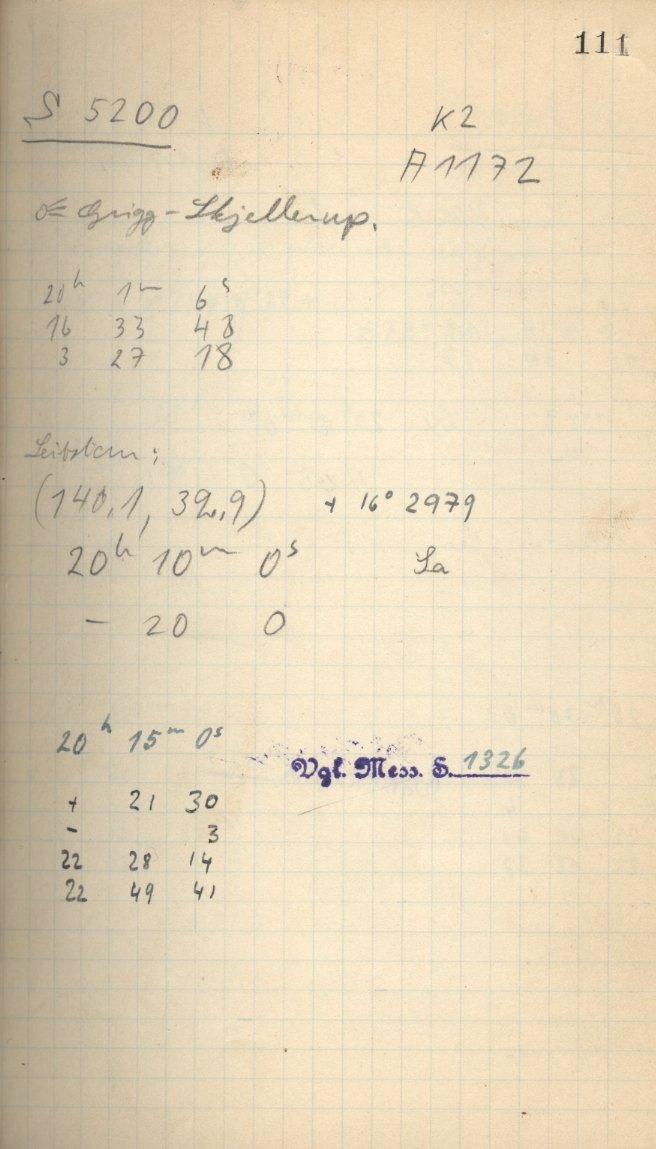 111
S 5200
K2
A1172
Grigg-Skjellerup.
20h 1m 6s
16 33 48
3 27 18
Leitstern:
(140,1, 392,9) + 16° 2979
20h 10m 0s La
- 20 0
20h 15m 0s
Vgl. Mess. S. 1326
+ 21 30
- 3
22 28 14
22 49 41